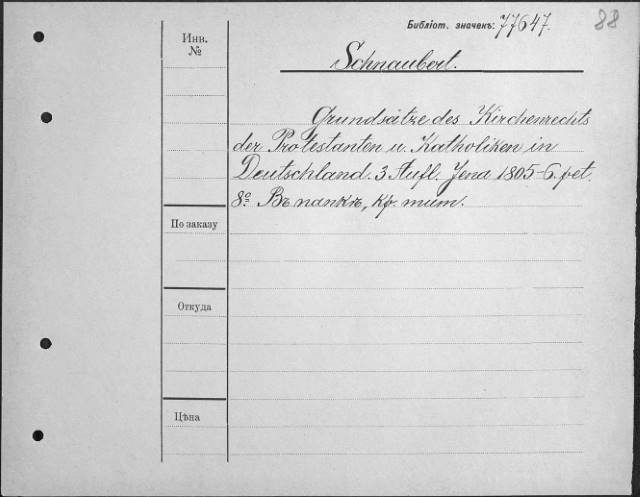 Библіот. значекъ: 77647. 88
Инв. №
Schnaubert.
Grundsätze des Kirchenrechts
der Protestanten u. Katholiken in
Deutschland. 3 Aufl. Jena 1805-6. pet.
8º. Въ папкѣ, кр. тит.
По заказу
Откуда
Цѣна